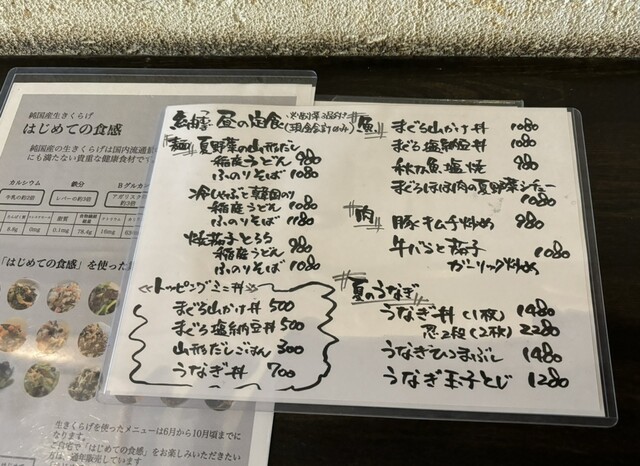 純国産生きくらげ
はじめての食感
純国産の生きくらげは国内流通量
にも満たない貴重な健康食材です
カルシウム
鉄分
Bグルカン
牛乳の約2倍
レバーの約3倍
脂質
6.8g
0mg
0.1mg
78.4g
16mg
「はじめての食感」を使った
生きくらげを使ったメニューは6月から10月頃までに
なります。
ご自宅で「はじめての食感」をお楽しみいただきたい
方は、通年販売しています
昼の定食
(現金会計のみ)
麺
夏野菜の山形だし
稲庭うどん 980
ふのりそば 1080
冷しゃぶと韓国のり
稲庭うどん 1080
ふのりそば 1180
焼茄子とろろ
稲庭うどん 980
ふのりそば 1080
トッピングミニ丼
まぐろ山かけ丼 500
まぐろ塩納豆丼 500
山形だしごはん 300
うなぎ丼 700
魚
まぐろ山かけ丼 1080
まぐろ塩納豆丼 1080
秋刀魚塩焼 980
まぐろほほ肉の夏野菜シチュー 1180
肉
豚キムチ炒め 980
牛バラと茄子 1080
ガーリック炒め
夏のうなぎ
うなぎ丼(1枚) 1480
忍2段(2枚) 2280
うなぎひつまぶし 1480
うなぎ玉子とじ 1280